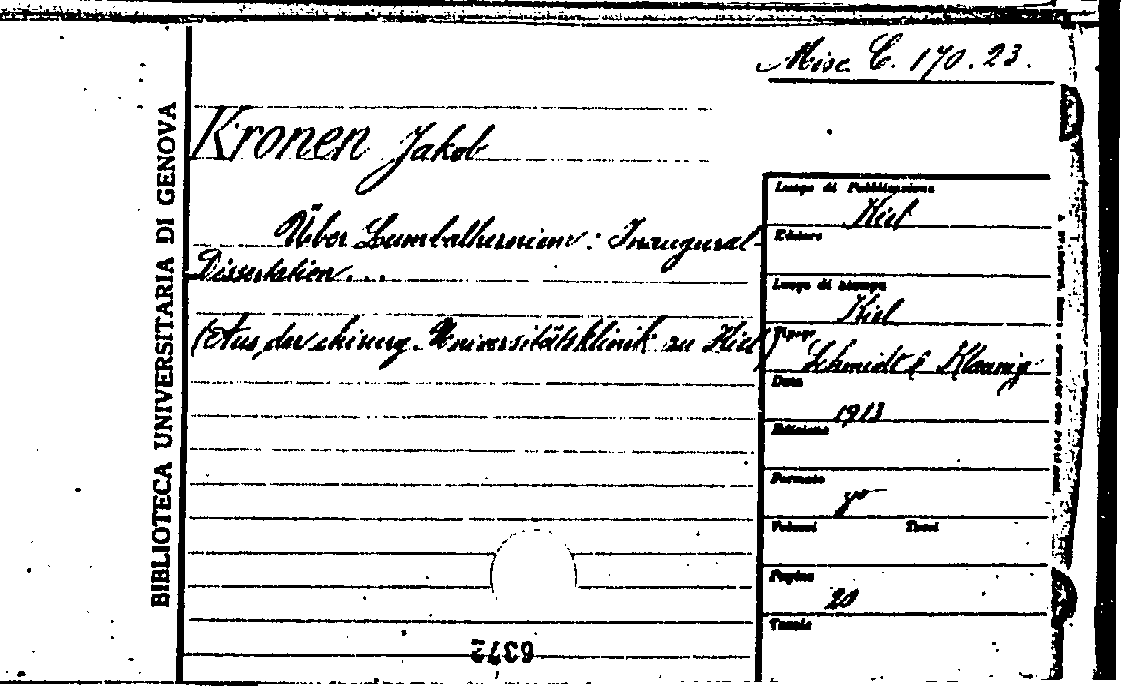 Misc. C. 170.23.
BIBLIOTECA UNIVERSITARIA DI GENOVA
Kronen Jakob
Über Lumbalhernien: Inaugural-
Dissertation....
(Aus der chirurg. Universitätsklinik zu Kiel)
Luogo di Pubblicazione
Kiel
Editore
Luogo di stampa
Kiel
Tipogr.
Schmidt & Klaunig
Data
1913
Edizione
Formato
Volumi Tomi
Pagine
20
Tavole
6372